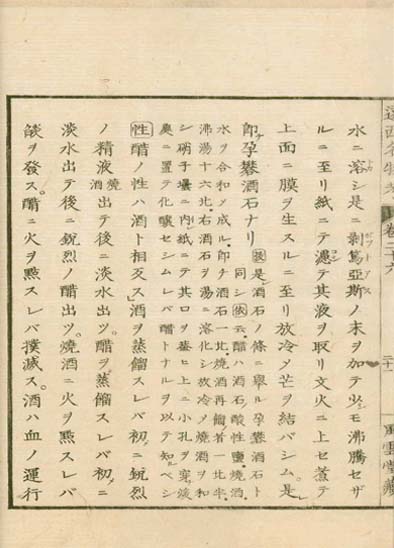 遠西名物考 卷二十六 二十一 風雲堂藏
水ニ溶シ是ニ剥篤亞斯ノ末ヲ加テ少モ沸騰セザ
ルニ至リ紙ニテ濾テ其液ヲ取リ文火ニ上セ蒸テ
上面ニ膜ヲ生スルニ至リ放冷メ芒ヲ結バシム。是レ
即孕礬酒石ナリ
是酒石ノ條ニ擧ル孕礬酒石ト
同シ依云醋ハ酒石酸性鹽燒酒
水ヲ合和メ成ル即チ酒石一比燒酒再餾者一比半
沸湯十六比右酒石ヲ湯ニ溶化シ放冷メ燒酒ヲ和
シ硝子壜ニ内レ紙ニテ其口ヲ蓋ヒ上ニ小孔ヲ穿
奧ニ置テ化釀セシムレバ醋トナルヲ以テ知ベシ
性醋ノ性ハ酒ト相反ス酒ヲ蒸餾スレバ初ニ鋭烈
ノ精液燒酒出テ後ニ淡水出ヅ。醋ヲ蒸餾スレバ初ニ
淡水出テ後ニ鋭烈ノ醋出ヅ。燒酒ニ火ヲ點スレバ
燄ヲ發ス。醋ニ火ヲ點スレバ撲滅ス。酒ハ血ノ運行